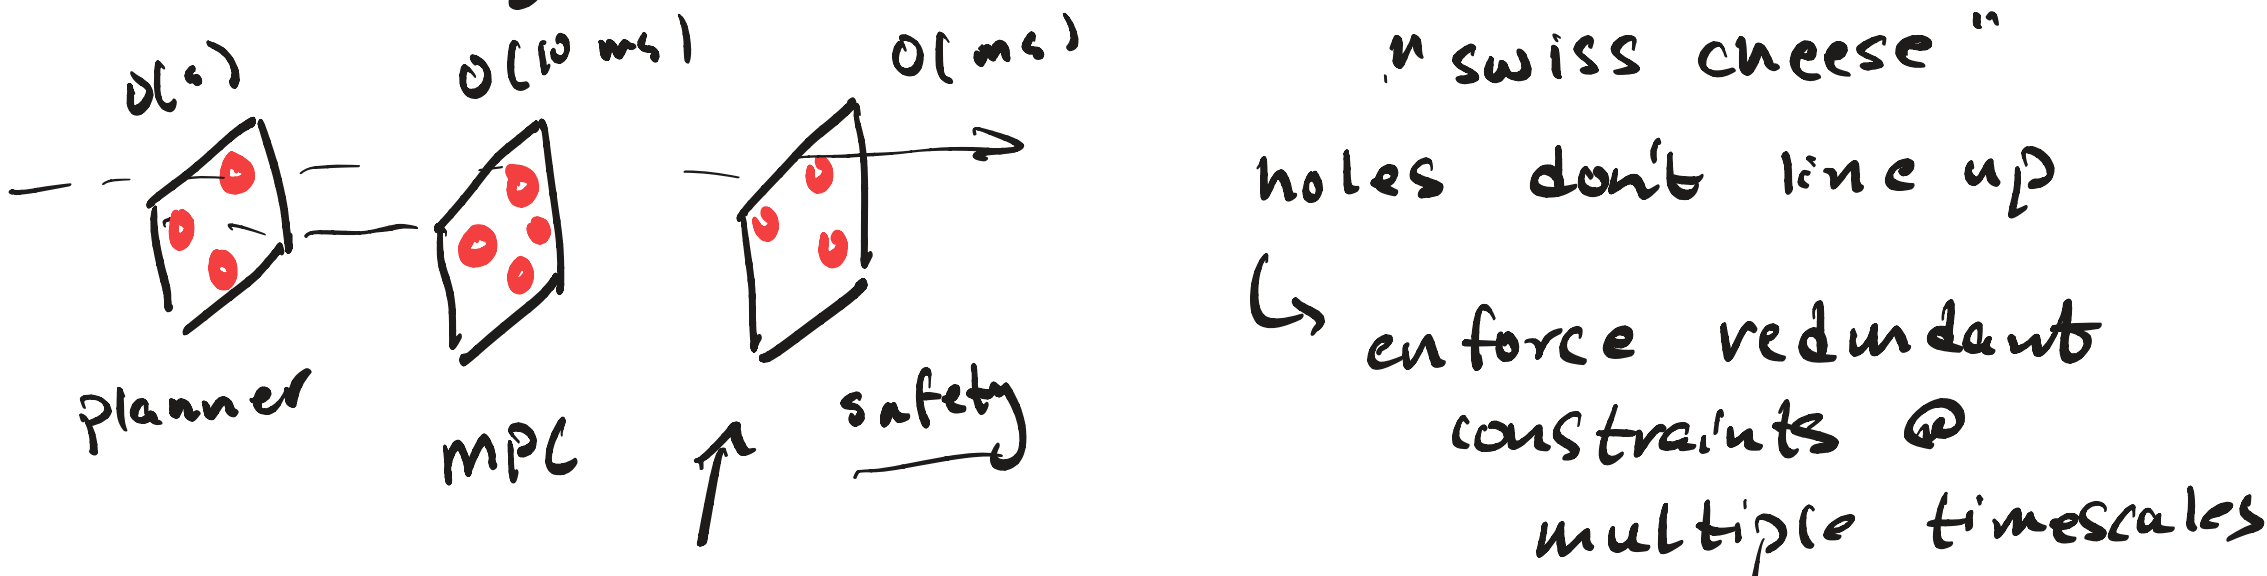 O(s)
O(10 ms)
O(ms)
planner
MPC
safety
"swiss cheese"
holes don't line up
enforce redundant
constraints @
multiple timescales